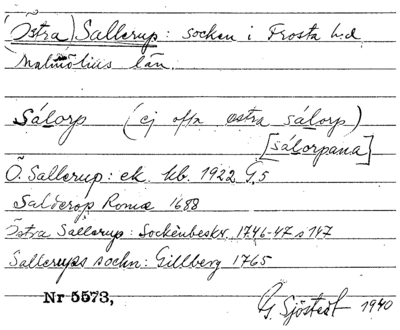 (Östra) Sallerup: socken i Frosta h.d
Malmöhus län.
Sálorp (ej ofta östra sálorp)
[sálorpana]
Ö. Sallerup: ek. kb. 1922 G,5
Salderop Romæ 1688
Östra Sallerup: Sockenbeskr. 1746-47 s 147
Sallerups sockn: Gillberg 1765
Nr 5573,
G. Sjöstedt 1940